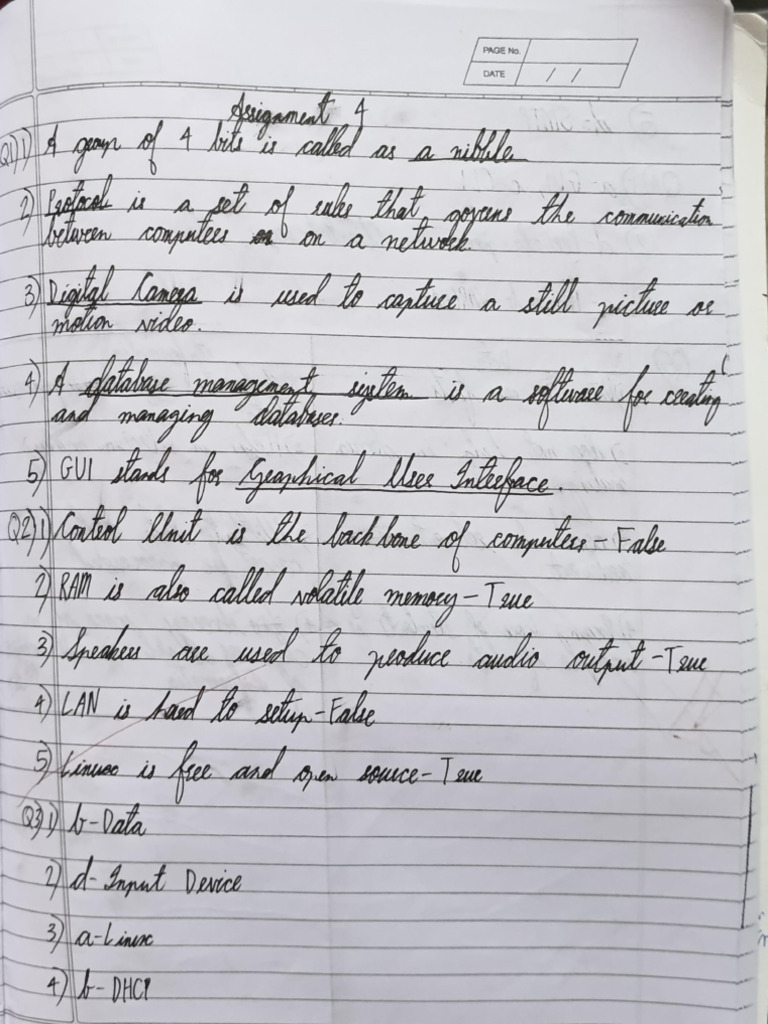 PAGE No.
DATE / /
Assignment 4
Q1) 1) A group of 4 bits is called as a nibble.
2) Protocol is a set of rules that governs the communication
between computers on a network.
3) Digital Camera is used to capture a still picture or
motion video.
4) A database management system is a software for creating
and managing databases.
5) GUI stands for Graphical User Interface.
Q2) 1) Control Unit is the backbone of computers - False
2) RAM is also called volatile memory - True
3) Speakers are used to produce audio output - True
4) LAN is hard to setup - False
5) Linux is free and open source - True
Q3) 1) b - Data
2) d - Input Device
3) a - Linux
4) b - DHCP